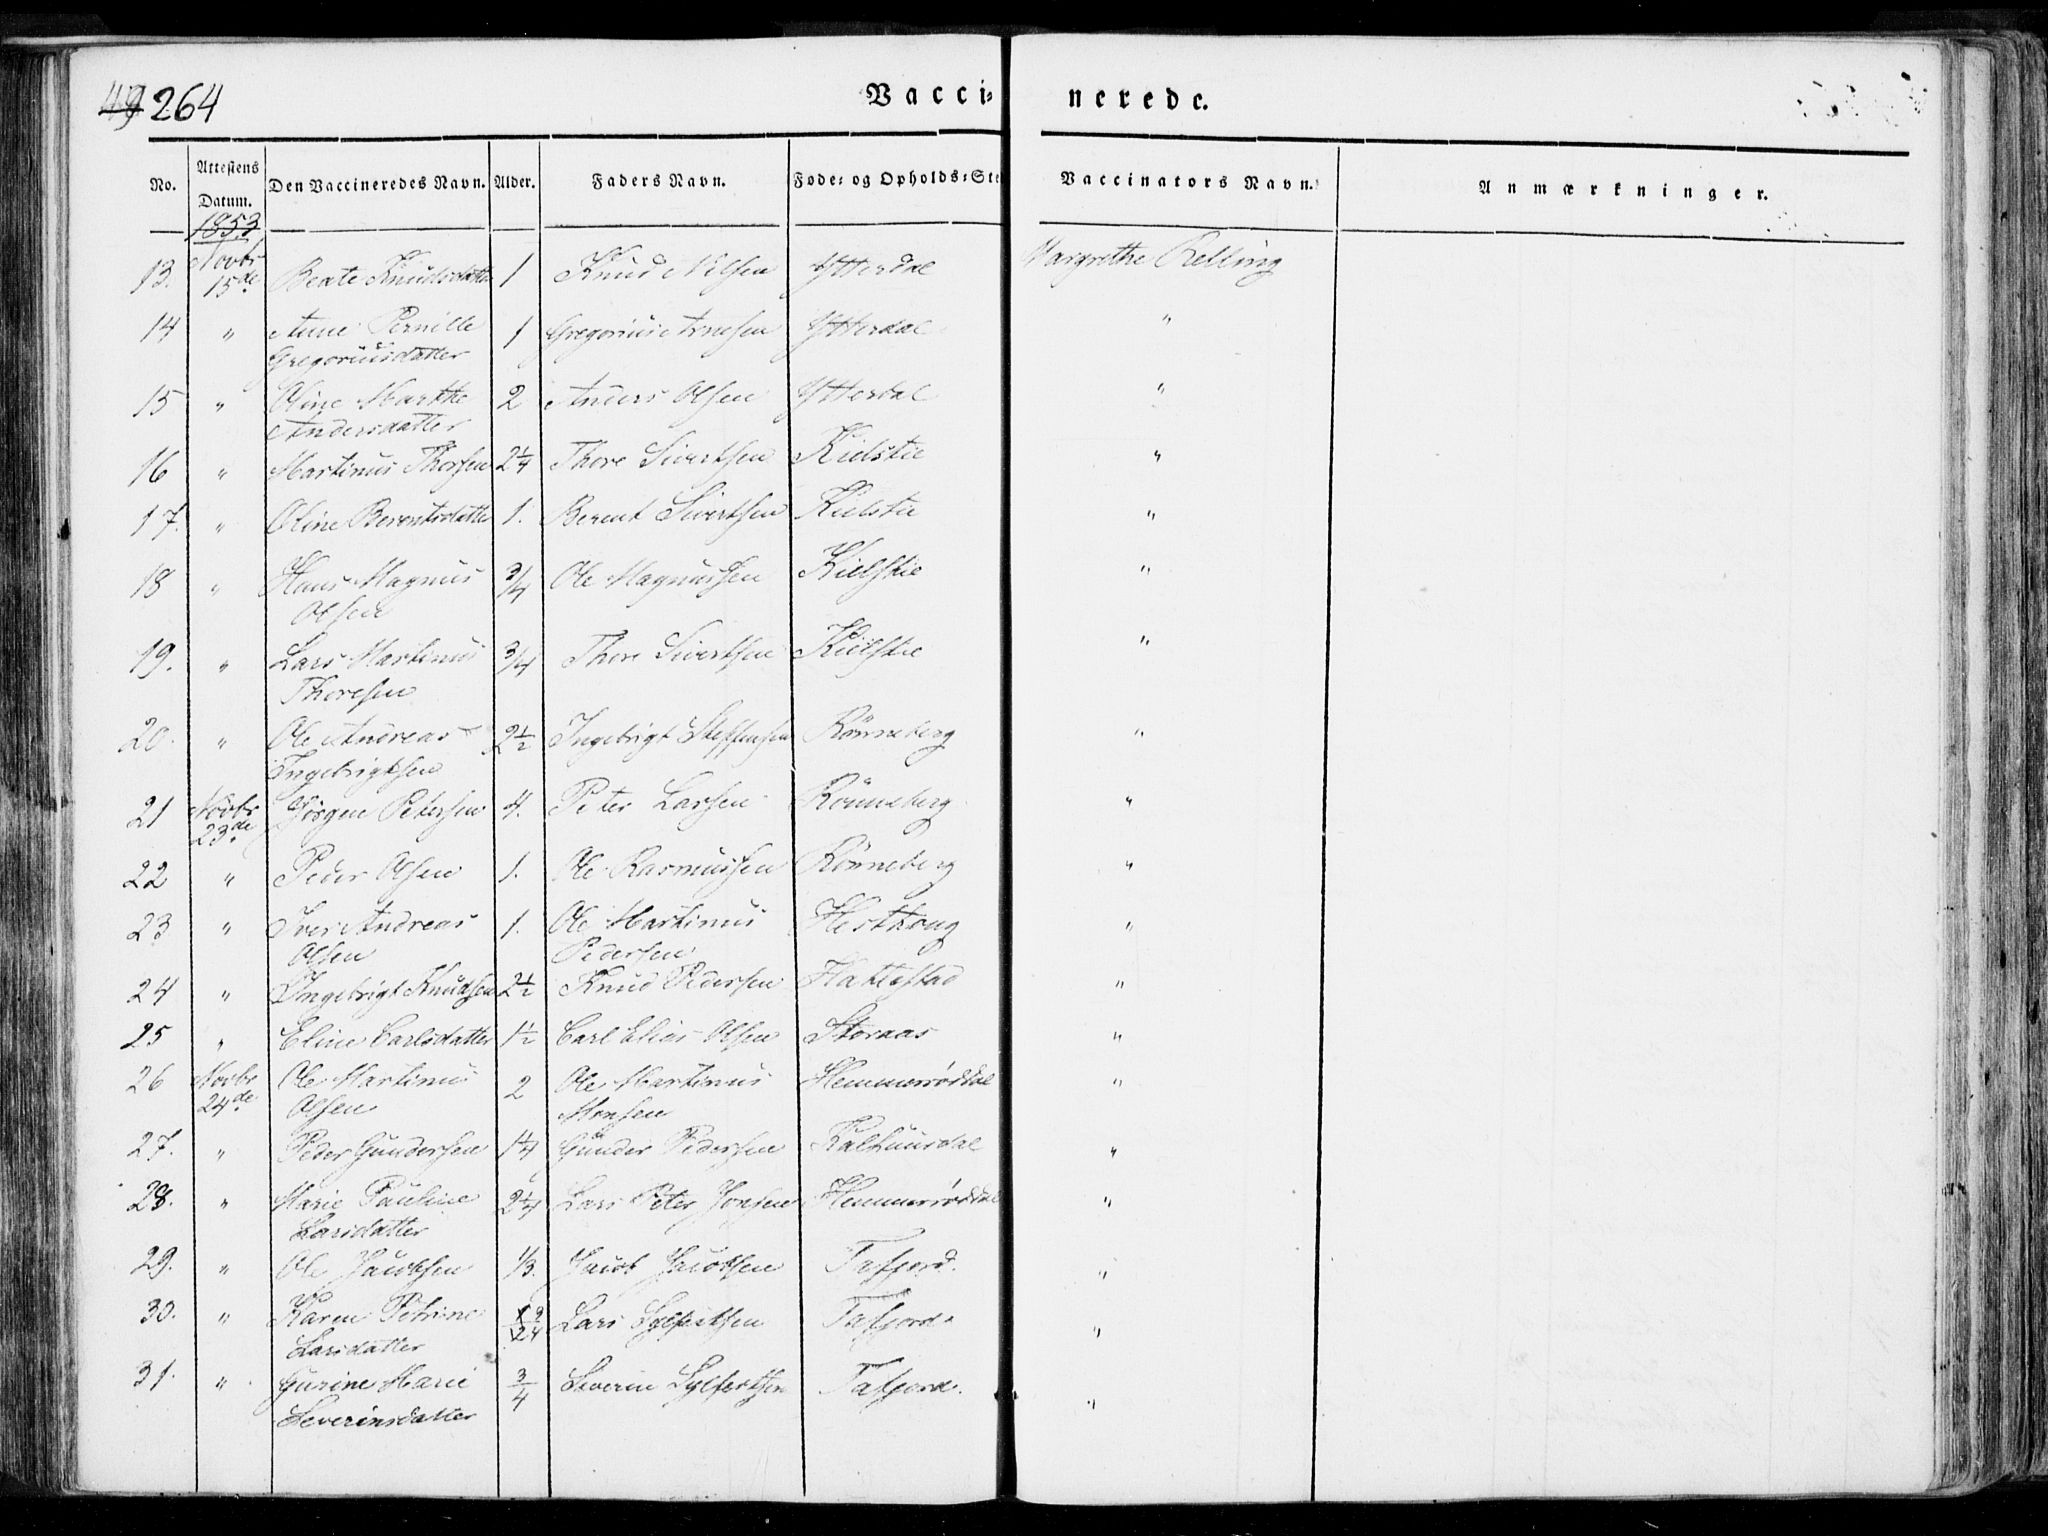 49 264
Vacci- nerede.
No. Attestens Datum. Den Vaccineredes Navn. Alder. Faders Navn. Føde- og Opholds-Ste Vaccinators Navn. Anmærkninger.
1853
13. Novbr 15de Beate Knudsdatter 1 Knud Nilsen Ytterdal Margrethe Relling
14 " Anne Pernille 1 Gregorius Arnesen Ytterdal "
Gregoriusdatter
15 " Oline Marthe 2 Anders Olsen Ytterdal "
Andersdatter
16 " Martinus Thorsen 2 1/4 Thore Sivertsen Kielstie "
17. " Oline Berentsdatter 1. Berent Sivertsen Kielstie "
18 " Hans Magnus 3/4 Ole Magnussen Kielstie "
Olsen
19. " Lars Martinus 3/4 Thore Sivertsen Kielstie "
Thoresen
20. " Ole Andreas 2 1/2 Ingebrigt Steffensen Rønneberg "
Ingebrigtsen
21 Novbr 23de Jørgen Petersen 4. Peter Larsen Rønneberg "
22 " Peder Olsen 1. Ole Rasmussen Rønneberg "
23 " Iver Andreas 1. Ole Martinus "
Olsen Pedersen
24 " Ingebrigt Knudsen 2 1/2 Knud Pedersen Hattestad "
25 " Eline Carlsdatter 1 1/2 Carl Elias Olsen Storaas "
26 Novbr 24de Ole Martinus 2 Ole Martinus "
Olsen Monsen
27. " Peder Gundersen 1 1/4 Gunder Pedersen Kalhuusdal "
28. " Marie Pauline 2 1/4 Lars Peter Jonsen "
Larsdatter
29. " Ole Jacobsen 1/3. Jacob Jacobsen Tafjord. "
30. " Karen Petrine Lars Sylfestsen Tafjord. "
Larsdatter
31. " Gurine Marie 3/4 Severin Sylfestsen Tafjord. "
Severinsdatter